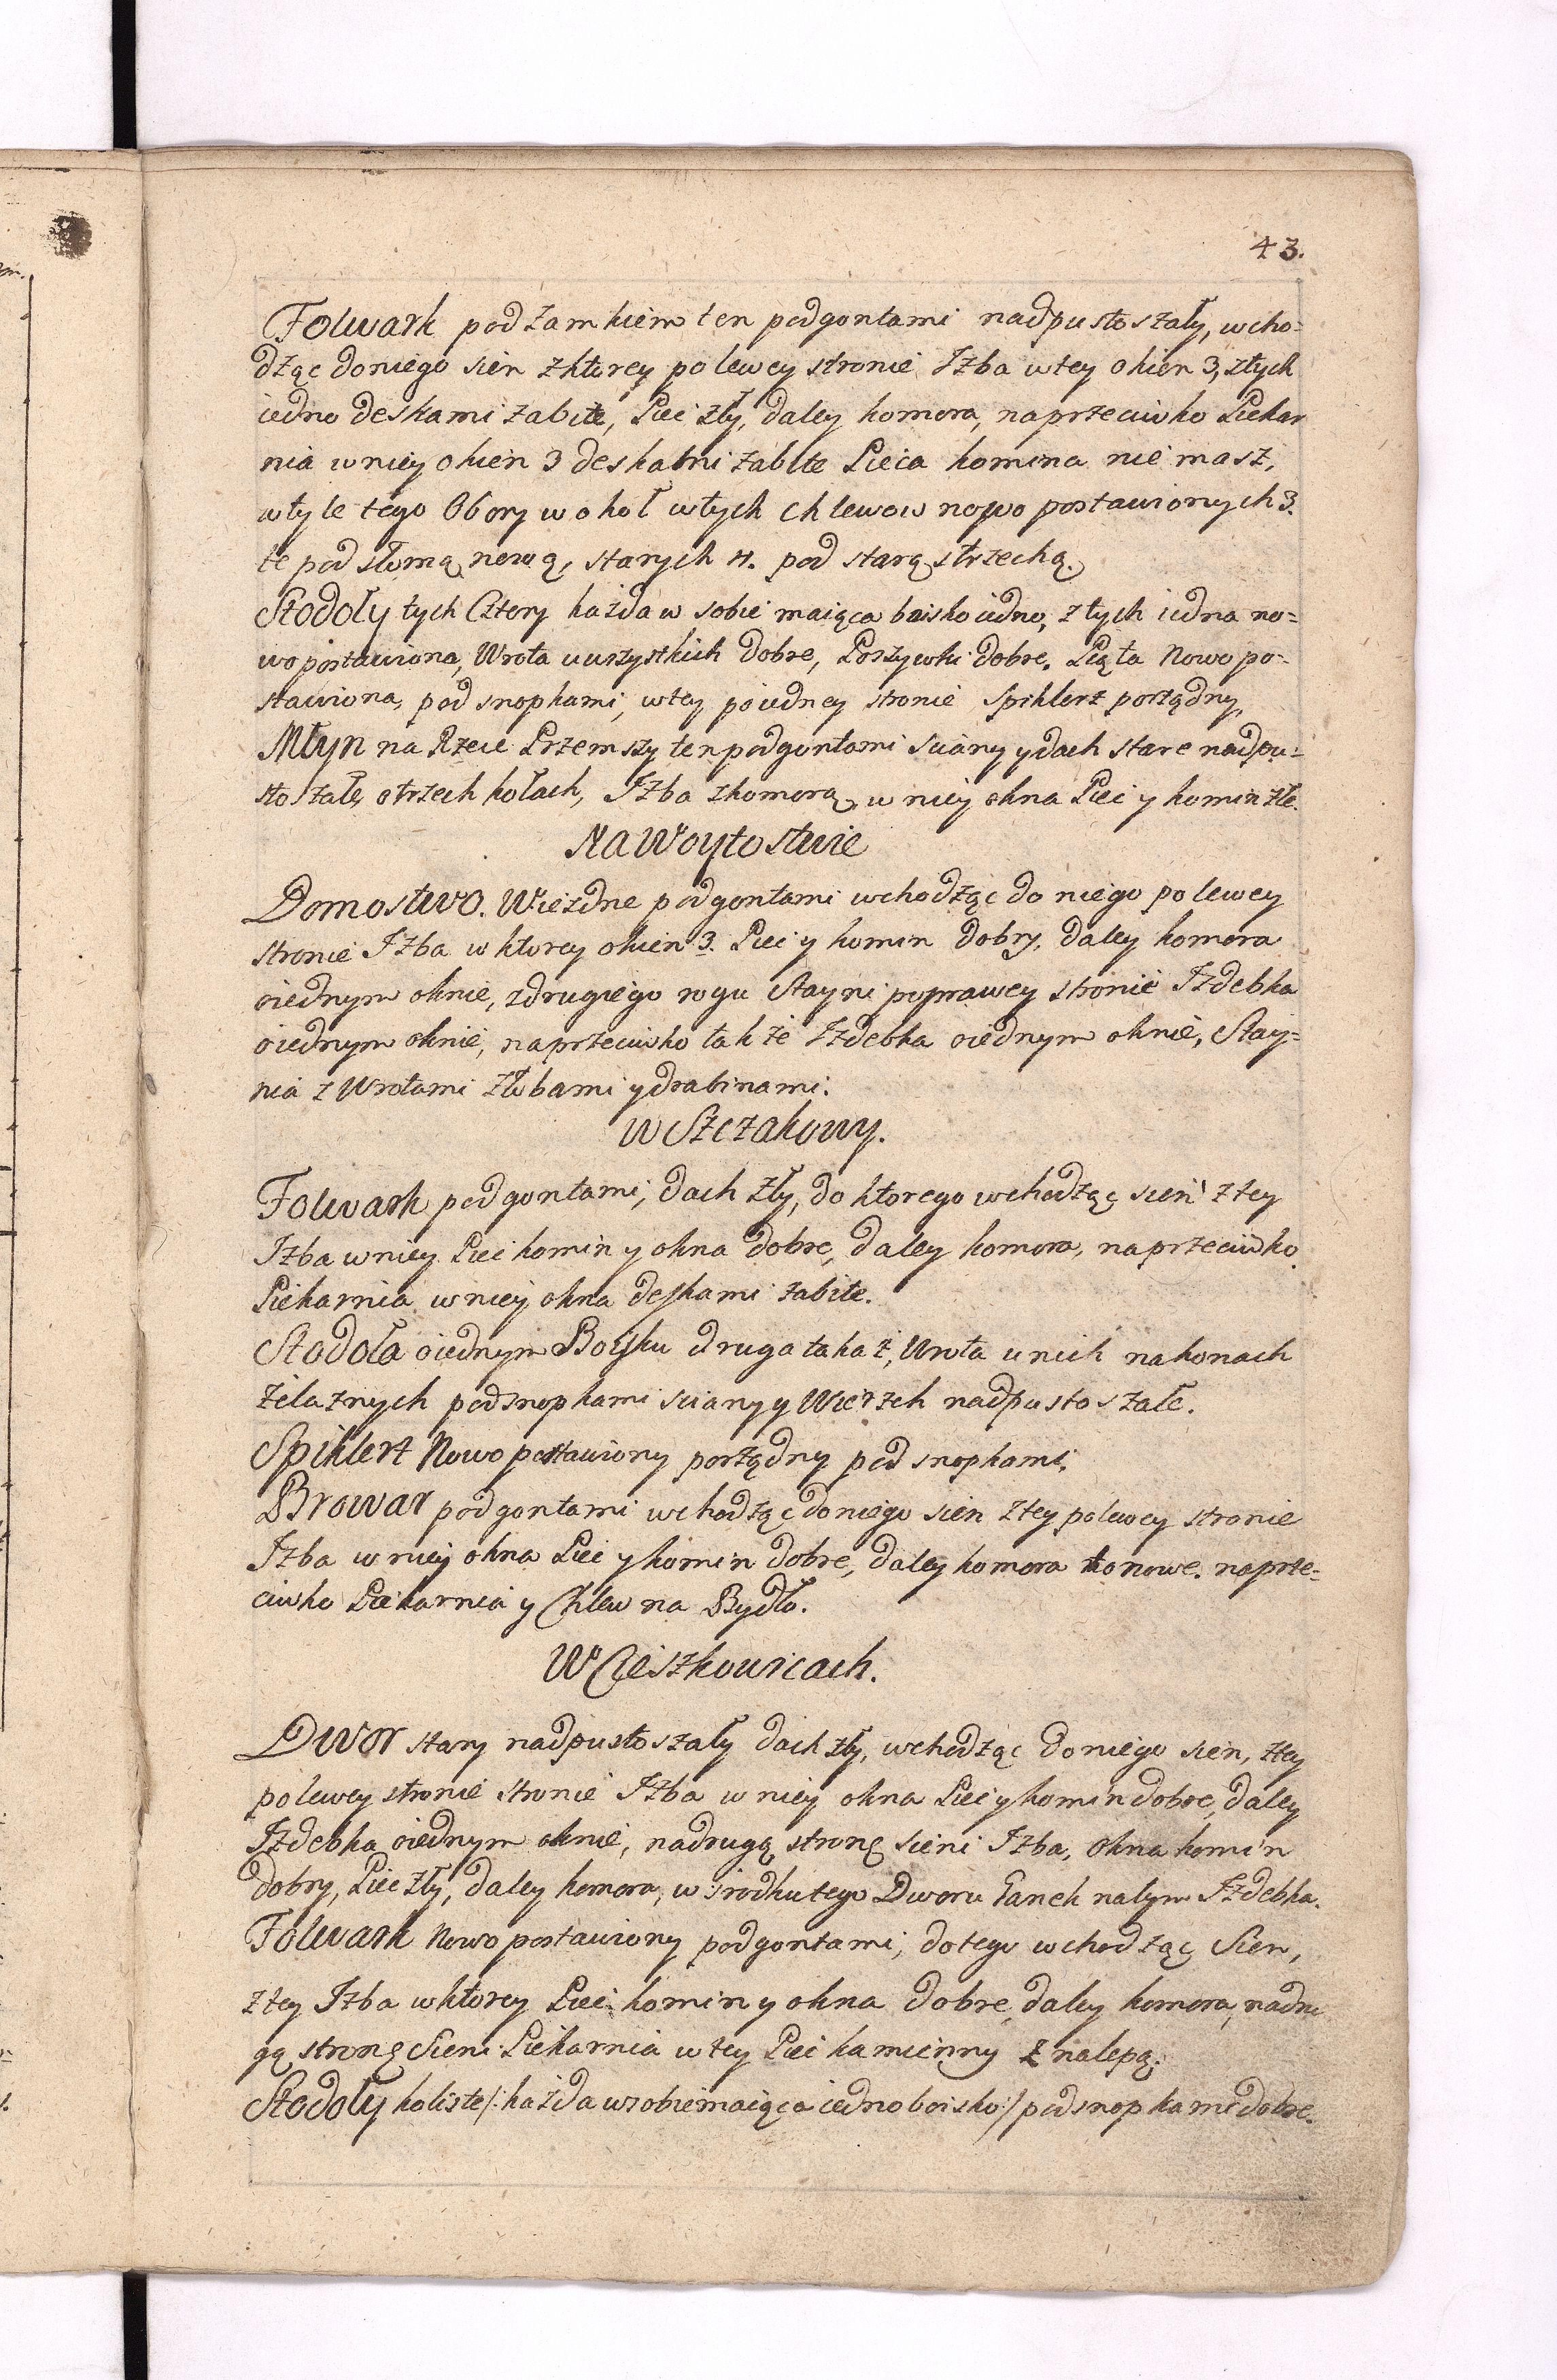 43.
Folwark pod Zamkiem ten pod gontami nadpustoszały, wcho=
dząc do niego sien z ktorey po lewey stronie Izba w tey okien 3, z tych
iedno deskami zabite, Piec zły, daley komora, naprzeciwko Piekar
nia w niey okien 3 deskami zabite Pieca komina nie masz,
w tyle tego Obory wokoł w tych chlewow nowo postawionych 3.
te pod słomą nową, starych 4. pod starą strzechą.
Stodoły tych Cztery każda w sobie maiąca boisko iedno, z tych iedna no=
wo postawiona, Wrota u wszystkich dobre, Poszywki dobre. Piąta Nowo po=
stawiona, pod snopkami, w tey po iedney stronie Spiklerz porządny,
Młyn na Rzece Przemszy ten pod gontami sciany y dach stare nadpu=
stoszałe, o trzech kołach, Izba z komorą, w niey okna Piec y komin złe.
Na Woytostwie
Domostwo. Wiezdne pod gontami wchodząc do niego po lewey
stronie Izba w ktorey okien 3. Piec y komin dobry, daley komora
o iednym oknie, z drugiego rogu Stayni po prawey stronie Izdebka
o iednym oknie, naprzeciwko także Izdebka o iednym oknie, Stay=
nia z Wrotami złobami y drabinami.
w Szczakowy.
Folwark pod gontami, dach zły, do ktorego wchodząc sień z tey
Izba w niey Piec komin y okna dobre, daley komora, naprzeciwko
Piekarnia w niey okna deskami zabite.
Stodoła o iednym Boisku druga takaż, Wrota u nich na konach
żelaznych pod snopkami sciany y Wierzch nadpustoszałe.
Spiklerz Nowo postawiony porządny pod snopkami.
Browar pod gontami wchodząc do niego sien z tey po lewey stronie
Izba w niey okna Piec y komin dobre, daley komora to nowe. naprze=
ciwko Piekarnia y Chlew na Bydło.
W Cieszkowicach.
Dwor stary nadpustoszały dach zły, wchodząc do niego sien, z tey
po lewey stronie stronie Izba w niey okna Piec y komin dobre, daley
Izdebka o iednym oknie, na drugą stronę sieni Izba, okna komin
dobry, Piec zły, daley komora, w srodku tego Dworu Ganek na tym Izdebka.
Folwark Nowo postawiony pod gontami, do tego wchodząc Sien,
z tey Izba w ktorey Piec komin y okna dobre, daley komora, na dru
gą stronę Sieni Piekarnia w tey Piec kamienny z nalepą.
Stodoły koliste /: każda w sobie maiąca iedno boisko :/ pod snopkami dobre.